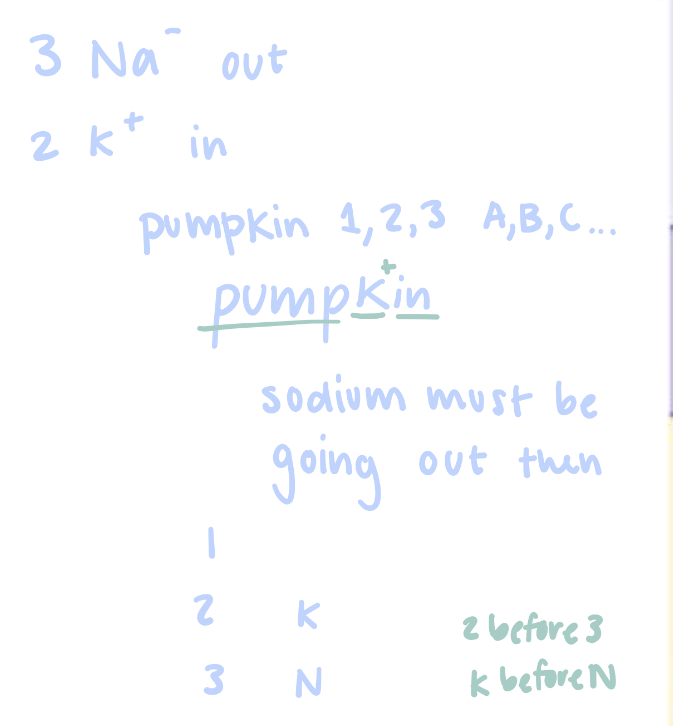 3 Na⁻ out
2 K⁺ in
pumpkin 1,2,3 A,B,C...
pumpK⁺in
sodium must be
going out then
1
2 K
3 N
2 before 3
K before N